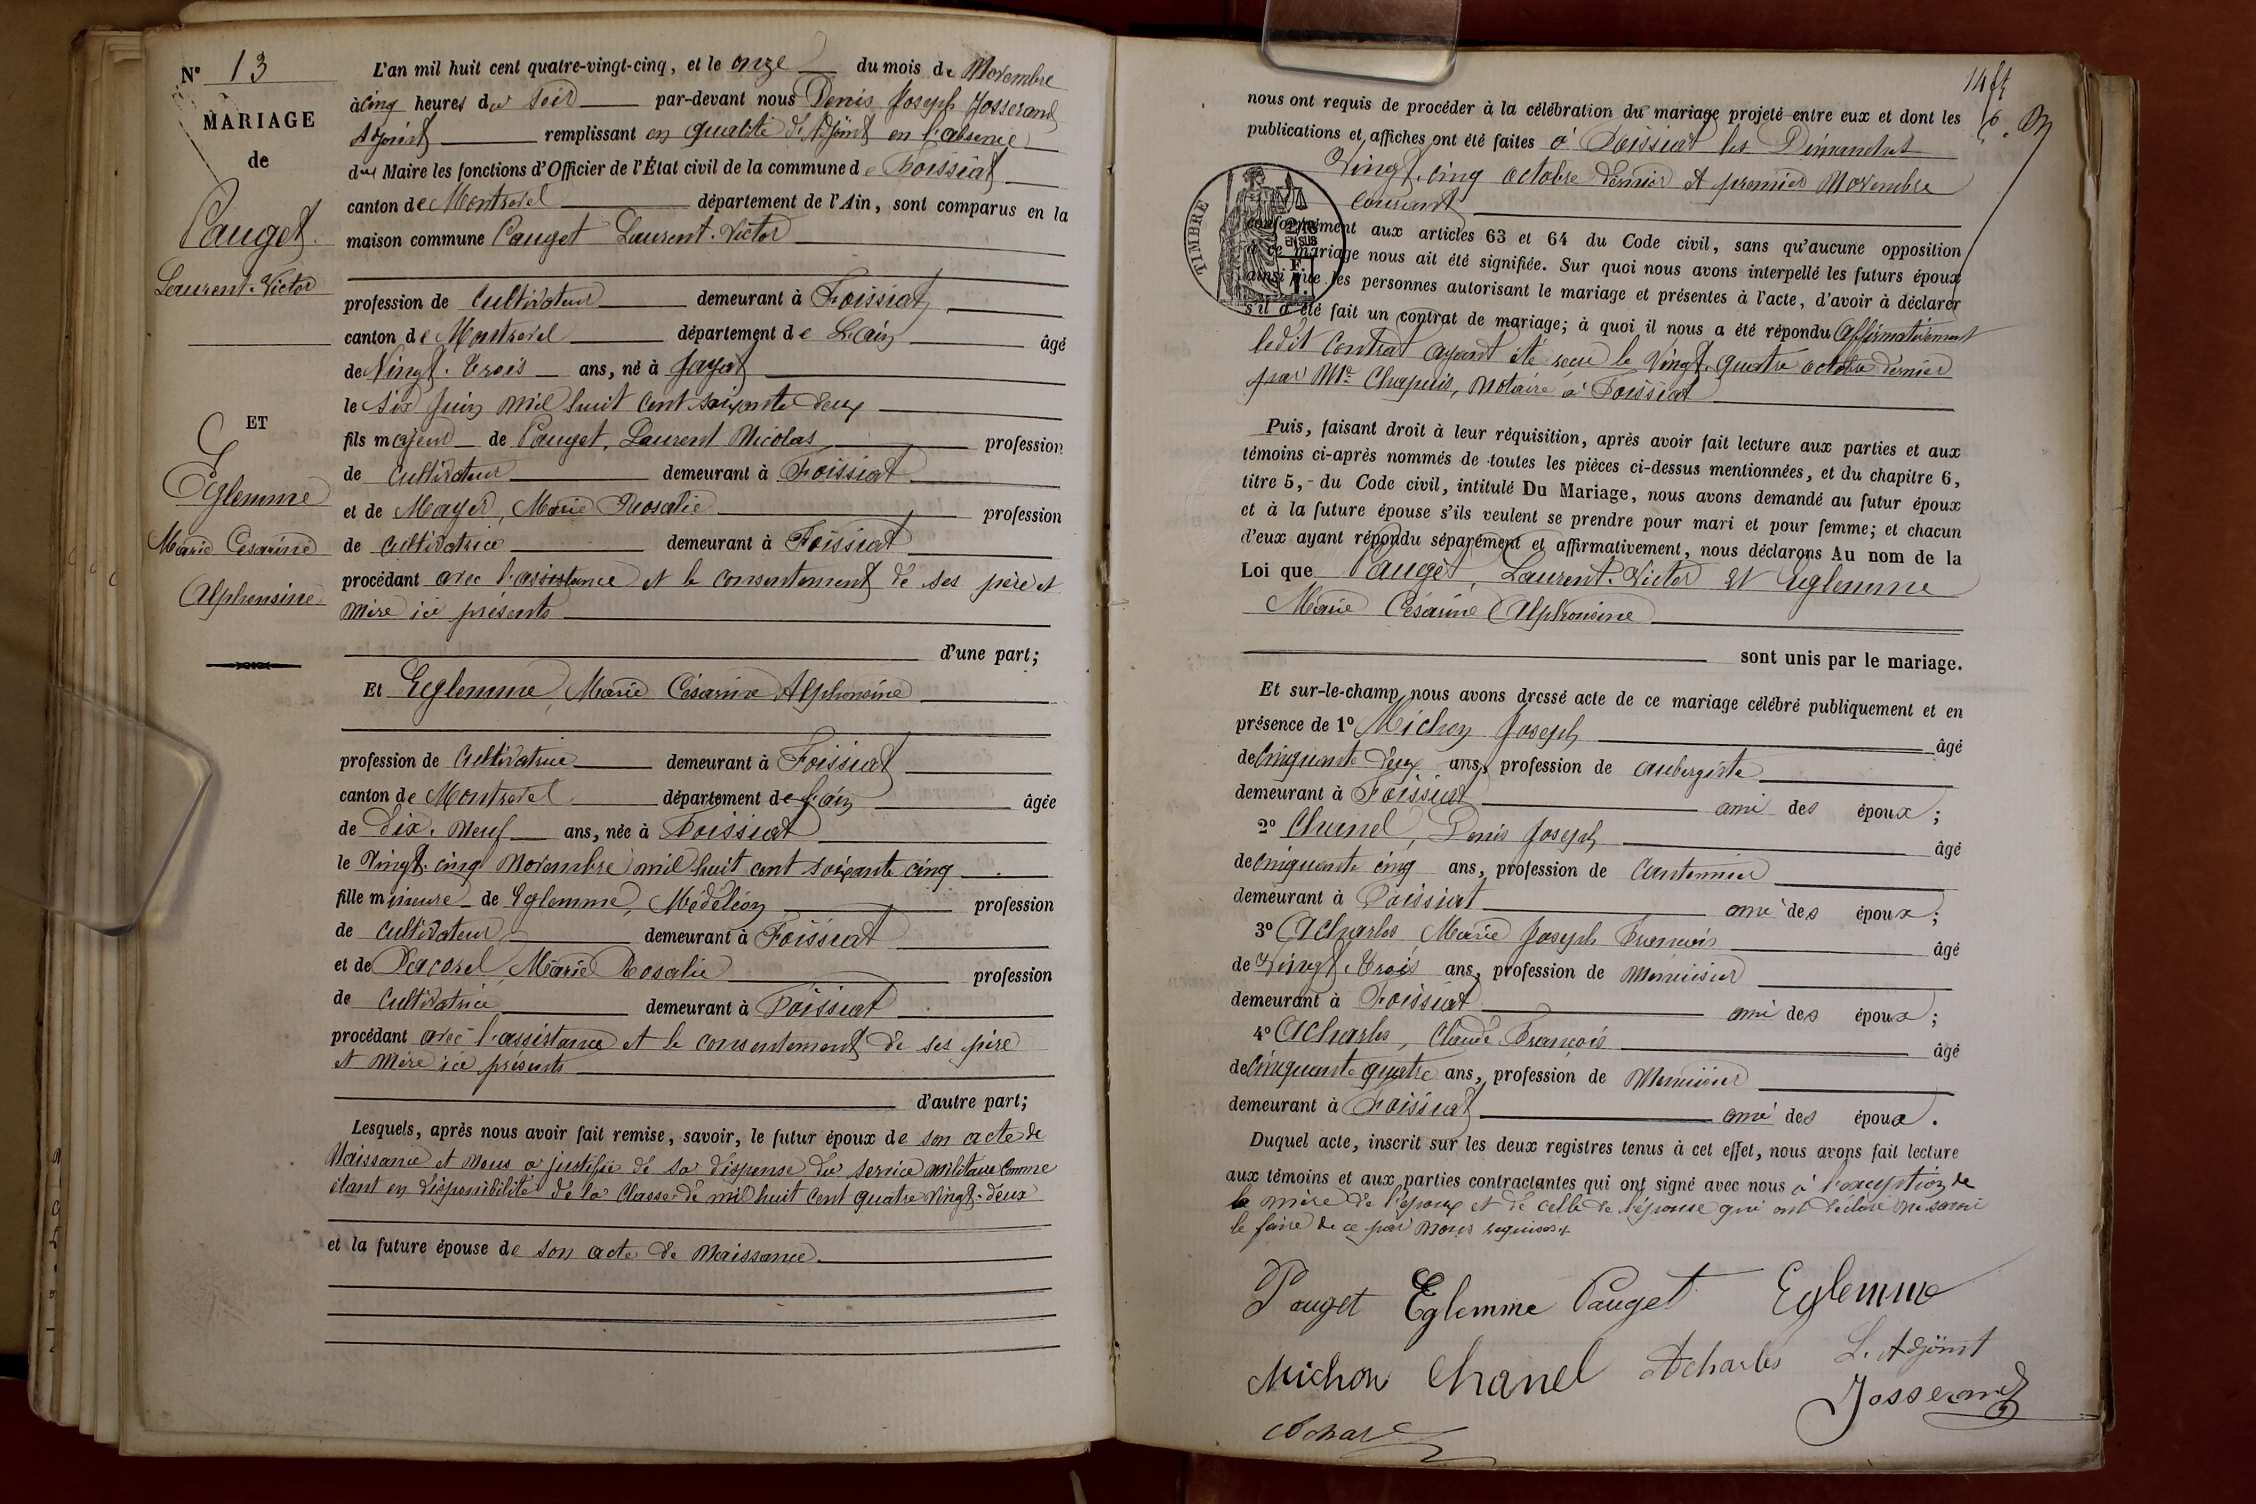 N° 13
MARIAGE
de
Pauget
Laurent-Victor
ET
Eglemme
Marie Cesarine
Alphonsine
L'an mil huit cent quatre-vingt-cinq, et le onze du mois de Novembre
à cinq heures du soir par-devant nous Denis Joseph Josserand
Adjoint remplissant en qualité d'Adjoint en l'absence
du Maire les fonctions d'Officier de l'État civil de la commune de Foissiat
canton de Montrevel département de l'Ain, sont comparus en la
maison commune Pauget Laurent-Victor
profession de Cultivateur demeurant à Foissiat
canton de Montrevel département de L'ain âgé
de Vingt-Trois ans, né à Jayat
le Six Juin mil huit cent soixante deux
fils majeur de Pauget, Laurent Nicolas profession
de Cultivateur demeurant à Foissiat
et de Mayer, Marie Rosalie profession
de Cultivatrice demeurant à Foissiat
procédant avec l'assistance et le consentement de ses père et
mère ici présents
d'une part;
Et Eglemme, Marie Césarine Alphonsine
profession de Cultivatrice demeurant à Foissiat
canton de Montrevel département de L'ain âgée
de Dix-Neuf ans, née à Foissiat
le Vingt-cinq Novembre mil huit cent soixante cinq
fille mineure de Eglemme, Médéléon profession
de Cultivateur demeurant à Foissiat
et de Pacorel, Marie Rosalie profession
de Cultivatrice demeurant à Foissiat
procédant avec l'assistance et le consentement de ses père
et mère ici présents
d'autre part;
Lesquels, après nous avoir fait remise, savoir, le futur époux de son acte de
Naissance et Nous a justifié de sa dispense du service militaire comme
étant en disponibilité de la Classe de mil huit cent quatre vingt-deux
et la future épouse de son acte de Naissance.
nous ont requis de procéder à la célébration du mariage projeté entre eux et dont les
publications et affiches ont été faites à Foissiat les Dimanches
Vingt-cinq octobre dernier et premier Novembre
courant
TIMBRE
conformément aux articles 63 et 64 du Code civil, sans qu'aucune opposition
à ce mariage nous ait été signifiée. Sur quoi nous avons interpellé les futurs époux
ainsi que les personnes autorisant le mariage et présentes à l'acte, d'avoir à déclarer
s'il a été fait un contrat de mariage; à quoi il nous a été répondu Affirmativement
ledit Contrat ayant été reçu le Vingt-quatre octobre dernier
par Me Chapuis, Notaire à Foissiat
Puis, faisant droit à leur réquisition, après avoir fait lecture aux parties et aux
témoins ci-après nommés de toutes les pièces ci-dessus mentionnées, et du chapitre 6,
titre 5, du Code civil, intitulé Du Mariage, nous avons demandé au futur époux
et à la future épouse s'ils veulent se prendre pour mari et pour femme; et chacun
d'eux ayant répondu séparément et affirmativement, nous déclarons Au nom de la
Loi que Pauget, Laurent-Victor et Eglemme
Marie Césarine Alphonsine
sont unis par le mariage.
Et sur-le-champ nous avons dressé acte de ce mariage célébré publiquement et en
présence de 1° Michon Joseph âgé
de Cinquante deux ans, profession de aubergiste
demeurant à Foissiat ami des époux;
2° Chanel, Denis Joseph âgé
de cinquante cinq ans, profession de Cantonnier
demeurant à Foissiat ami des époux;
3° Acharles Marie Joseph Francois âgé
de Vingt-Trois ans, profession de Menuisier
demeurant à Foissiat ami des époux;
4° Acharles, Claude François âgé
de Cinquante quatre ans, profession de Menuisier
demeurant à Foissiat ami des époux.
Duquel acte, inscrit sur les deux registres tenus à cet effet, nous avons fait lecture
aux témoins et aux parties contractantes qui ont signé avec nous à l'exception de
la mère de l'époux et de celle de l'épouse qui ont déclaré ne savoir
le faire de ce par Nous requises
Pauget Eglemme Pauget Eglemme
Michon Chanel Acharles L'Adjoint
Josserand